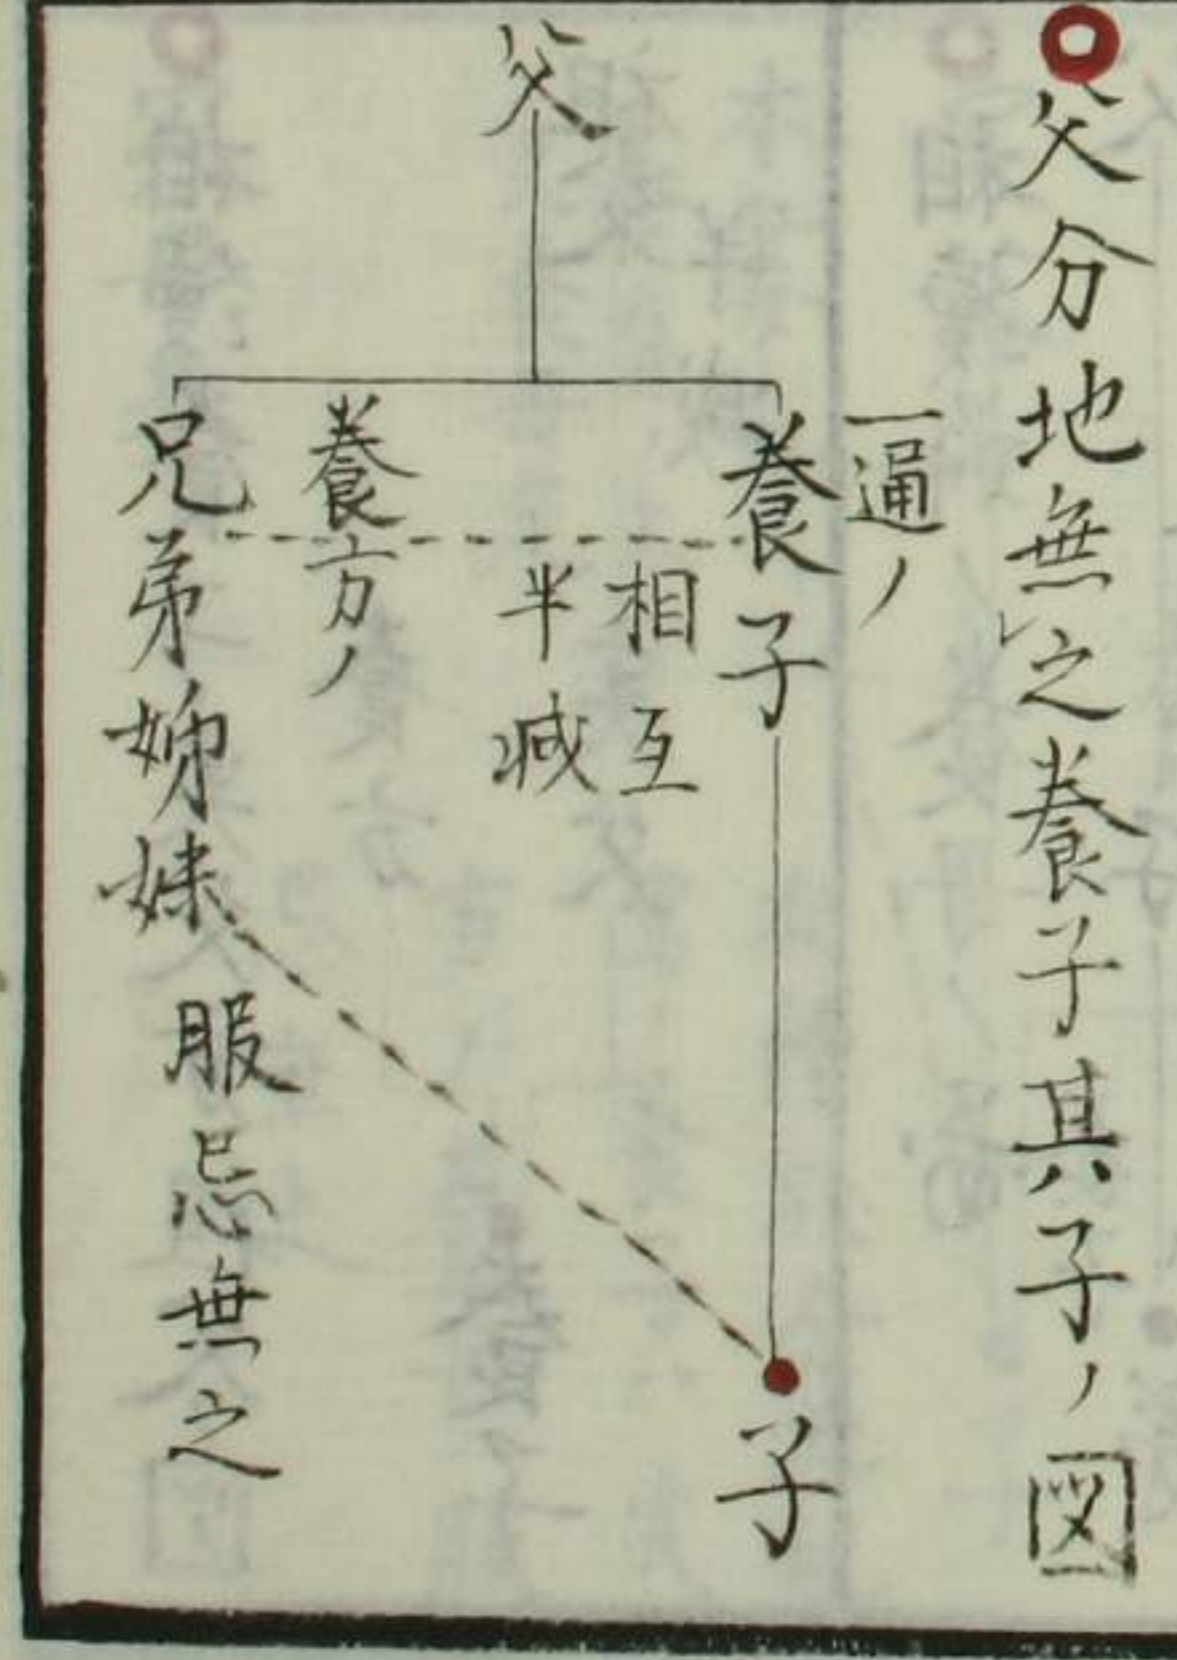 父分地無之養子其子ノ図
父
一通ノ
養子
相互
半減
養方ノ
兄弟姉妹
服忌無之
子